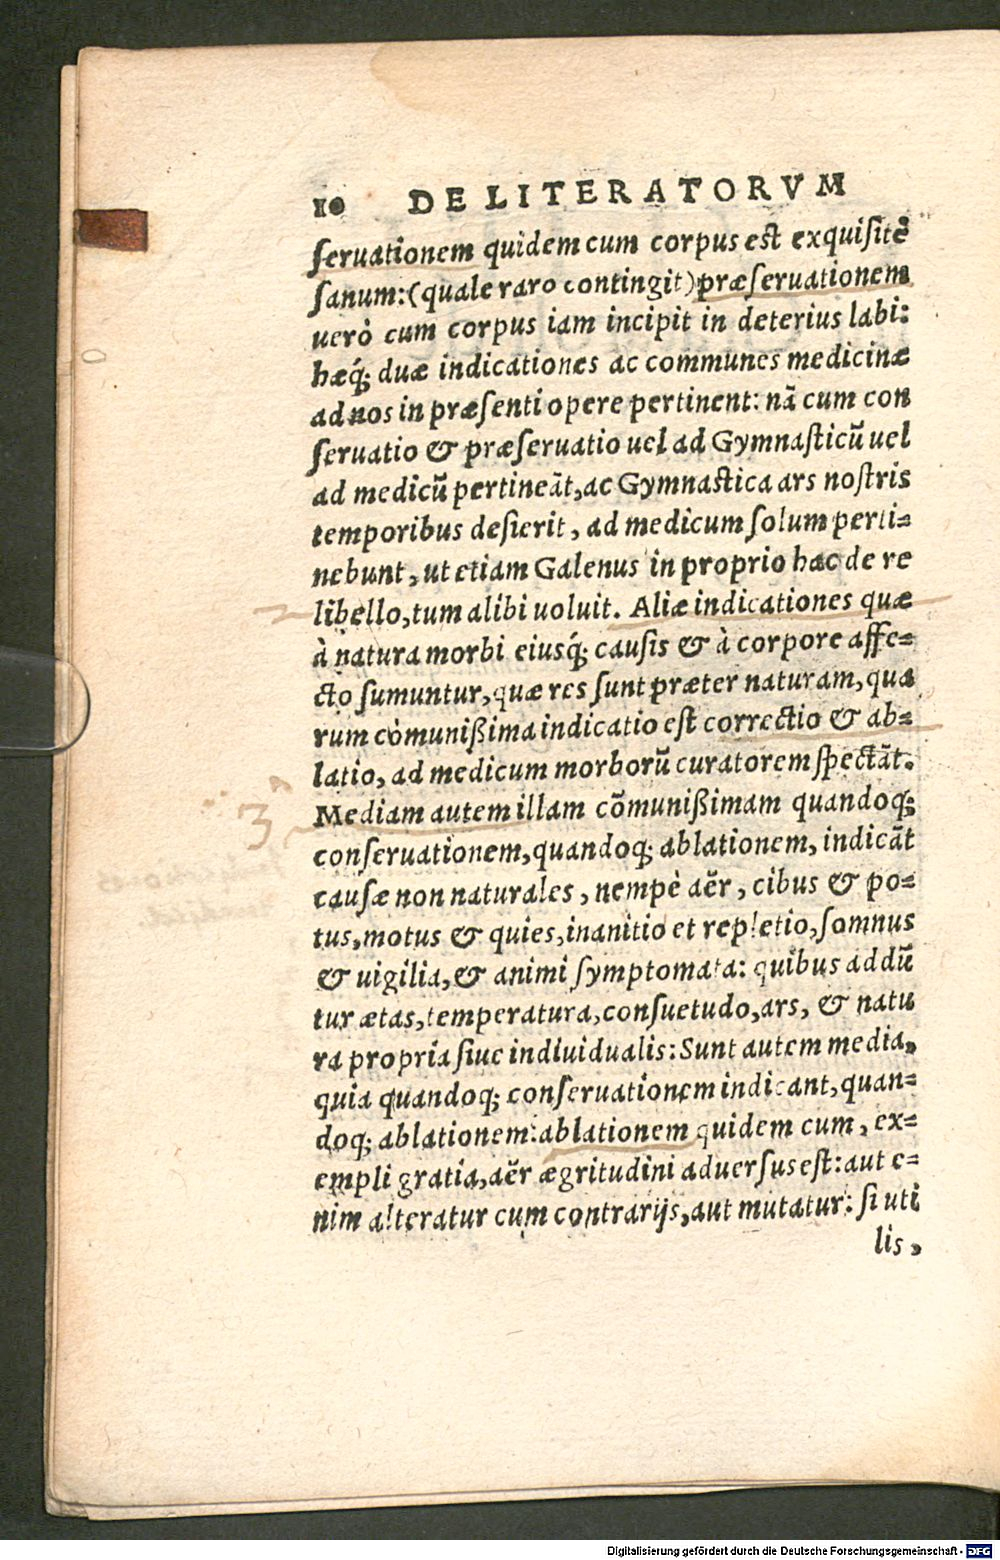 10 DE LITERATORVM
ſeruationem quidem cum corpus est exquiſitè
ſanum: (quale raro contingit) præſeruationem
uerò cum corpus iam incipit in deterius labi:
hæq́; duæ indicationes ac communes medicinæ
ad nos in præſenti opere pertinent: nã cum con
ſeruatio & præſeruatio uel ad Gymnaſticũ uel
ad medicũ pertineãt, ac Gymnastica ars noſtris
temporibus deſierit, ad medicum ſolum perti=
nebunt, ut etiam Galenus in proprio hac de re
libello, tum alibi uoluit. Aliæ indicationes quæ
à natura morbi eiusq́; causis & à corpore affe=
cto ſumuntur, quæ res ſunt præter naturam, qua
rum cõmunißima indicatio eſt correctio & ab=
latio, ad medicum morborũ curatorem ſpectãt.
Mediam autem illam cõmunißimam quandoq;
conſeruationem, quandoq; ablationem, indicãt
cauſæ non naturales, nempè aër, cibus & po=
tus, motus & quies, inanitio et repletio, ſomnus
& uigilia, & animi ſymptomata: quibus addũ
tur ætas, temperatura, conſuetudo, ars, & natu
ra propria ſiue indiuidualis: Sunt autem media,
quia quandoq; conſeruationem indicant, quan=
doq; ablationem: ablationem quidem cum, ex=
empli gratia, aër ægritudini aduerſus eſt: aut e=
nim alteratur cum contrarijs, aut mutatur: ſi uti
lis,
3
Digitalisierung gefördert durch die Deutsche Forschungsgemeinschaft - DFG